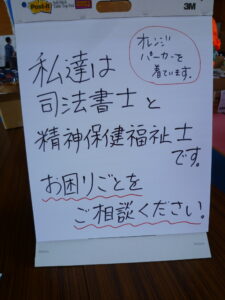 Post-it
3M
オレンジ
パーカーを
着ています。
私達は
司法書士と
精神保健福祉士
です。
お困りごとを
ご相談ください。